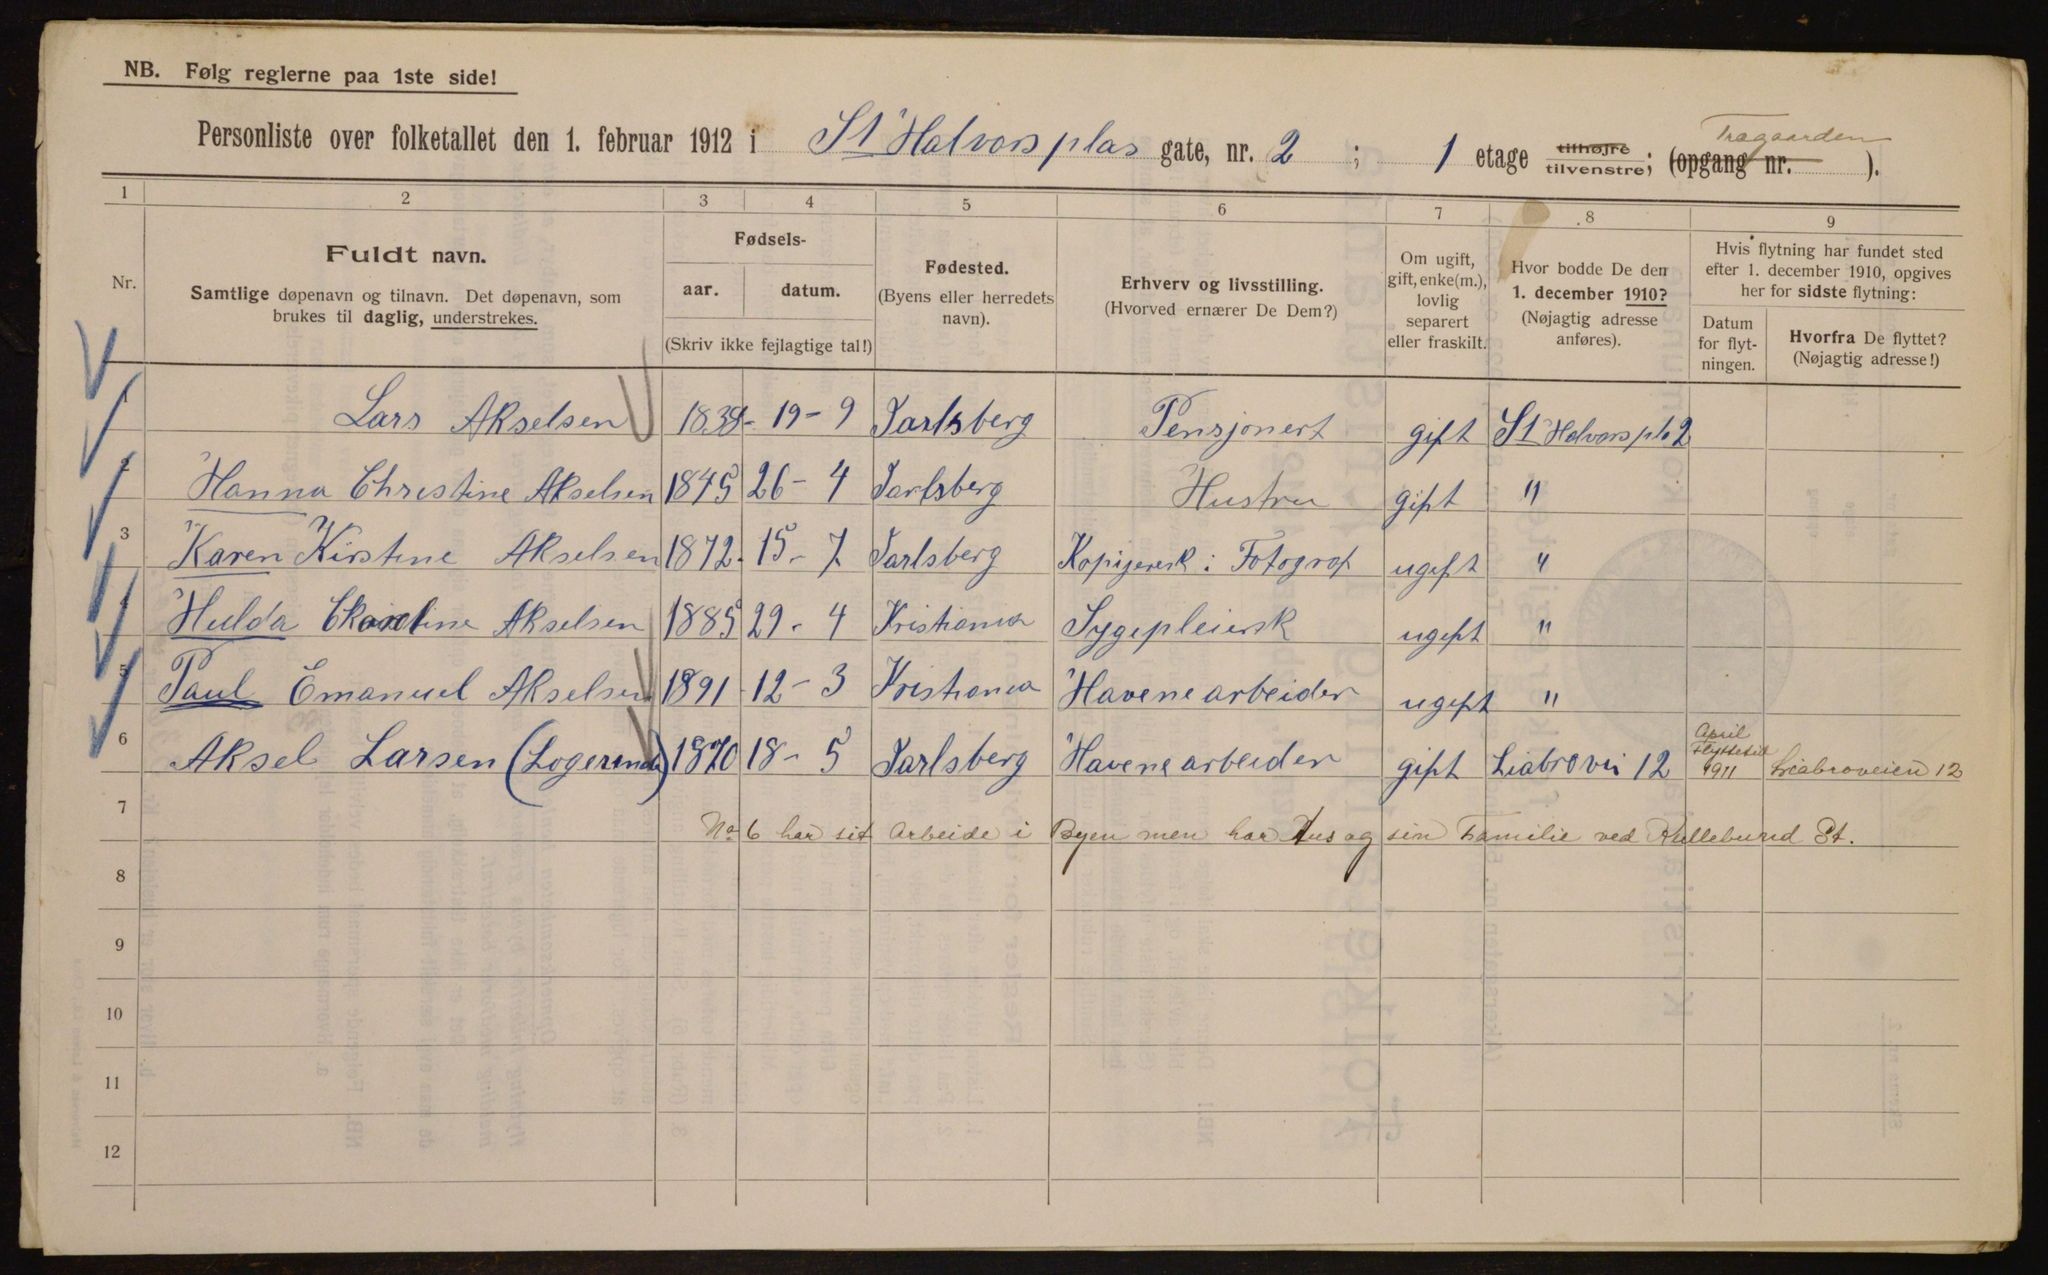 NB. Følg reglerne paa 1ste side!
Personliste over folketallet den 1. februar 1912 i St Halvors plas gate, nr. 2 ; 1 etage tilhøjre tilvenstre; (opgang nr. ).
Tragaarden
1 2 3 4 5 6 7 8 9
Nr.
Fuldt navn.
Samtlige døpenavn og tilnavn. Det døpenavn, som
brukes til daglig, understrekes.
Fødsels-
aar. datum.
(Skriv ikke fejlagtige tal!)
Fødested.
(Byens eller herredets
navn).
Erhverv og livsstilling.
(Hvorved ernærer De Dem?)
Om ugift,
gift, enke(m.),
lovlig
separert
eller fraskilt.
Hvor bodde De den
1. december 1910?
(Nøjagtig adresse
anføres).
Hvis flytning har fundet sted
efter 1. december 1910, opgives
her for sidste flytning:
Datum
for flyt-
ningen.
Hvorfra De flyttet?
(Nøjagtig adresse!)
1 Lars Akselsen 1838 - 19 - 9 Jarlsberg Pensjonert gift St Halvors pl. 2
2 Hanna Christine Akselsen 1845 26 - 4 Jarlsberg Hustru gift "
3 Karen Kirstine Akselsen 1872 - 15 - 7 Jarlsberg Kopijersk i Fotograf ugift "
4 Hulda Akselsen 1885 29 - 4 Kristiania Sygepleiersk ugift "
5 Paul Emanuel Akselsen 1891 - 12 - 3 Kristiania Havnearbeider ugift "
6 Aksel Larsen (Logerende) 1870 18 - 5 Jarlsberg Havnearbeider gift Liabrovei 12 April Flyttetid 1911 Liabroveien 12
7 No 6 har sit Arbeide i Byen men har Hus og sin Familie ved St.
8
9
10
11
12